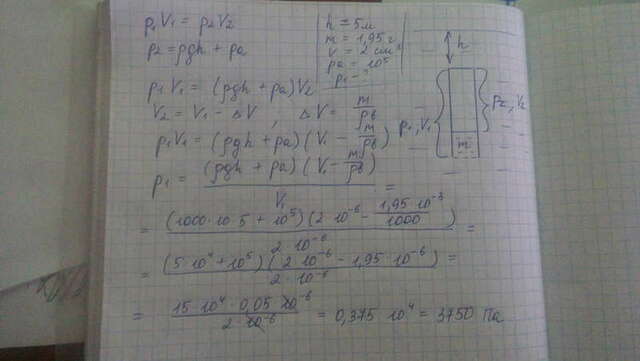 p₁V₁ = p₂V₂
p₂ = ρgh + pa
h = 5м
m = 1,95 г
V = 2 см³
pa = 10⁵
p₁ - ?
h
p₁, V₁
p₂, V₂
m
p₁V₁ = (ρgh + pa)V₂
V₂ = V₁ - ΔV, ΔV = m/ρв
p₁V₁ = (ρgh + pa)(V₁ - m/ρв)
p₁ = (ρgh + pa)(V₁ - m/ρв)/V₁ =
= (1000·10·5 + 10⁵)(2·10⁻⁶ - 1,95·10⁻³/1000)/2·10⁻⁶ =
= (5·10⁴ + 10⁵)(2·10⁻⁶ - 1,95·10⁻⁶)/2·10⁻⁶ =
= 15·10⁴·0,05·10⁻⁶/2·10⁻⁶ = 0,375·10⁴ = 3750 Па